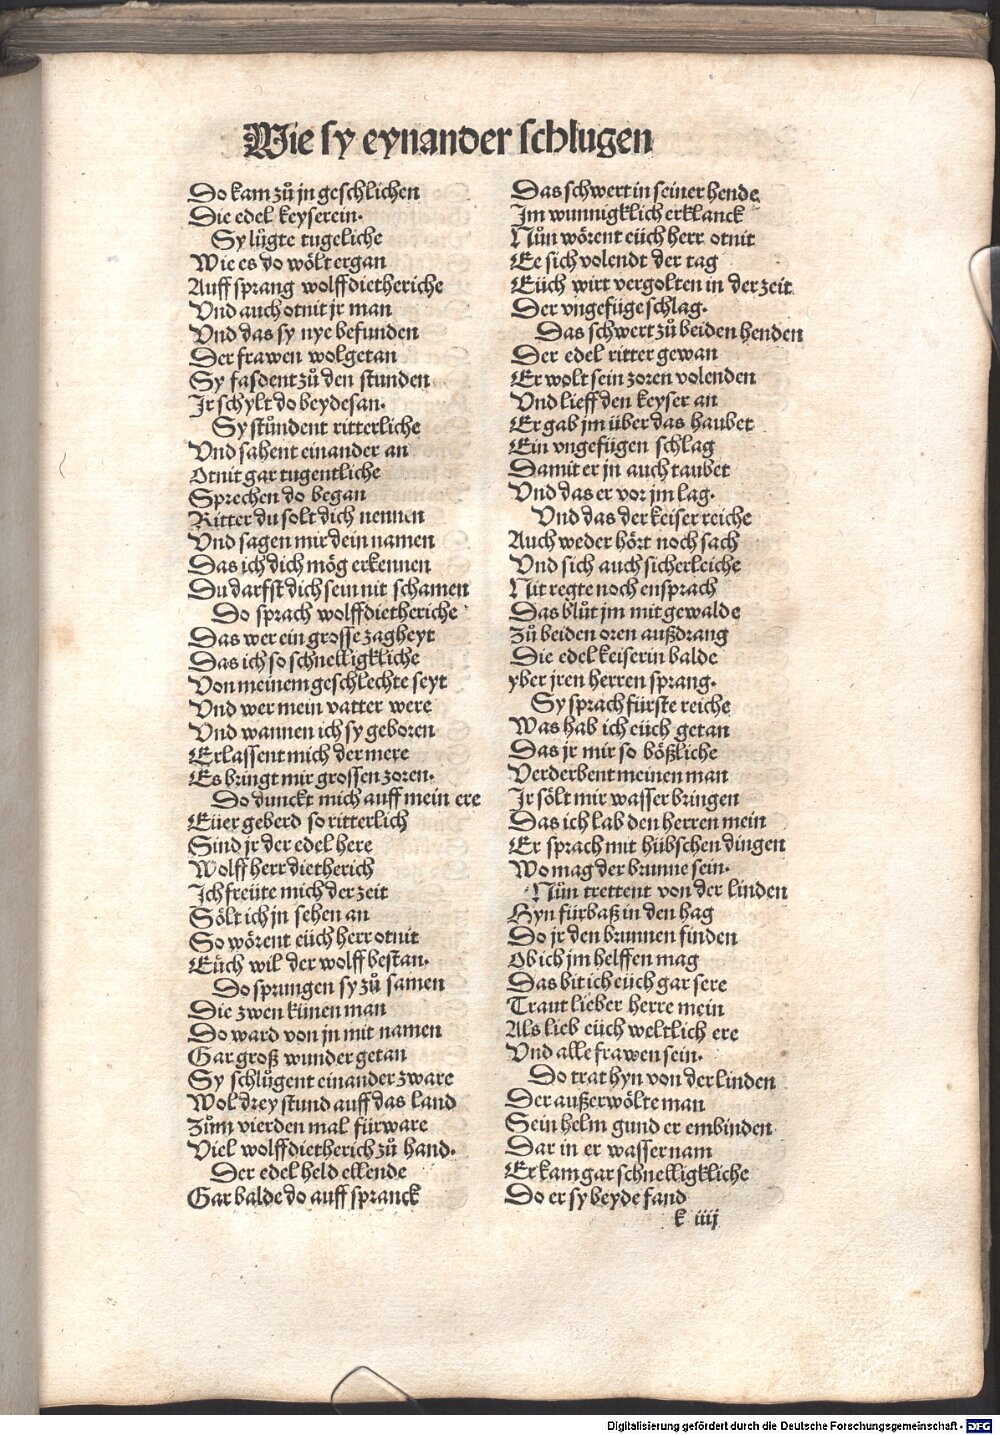 Wie sy eynander schlugen
Do kam zů jn geschlichen
Die edel keyserein.
Sy lůgte tugeliche
Wie es do wölt ergan
Auff sprang wolffdietheriche
Vnd auch otnit jr man
Vnd das sy nye befunden
Der frawen wolgetan
Sy fasdent zů den stunden
Jr schylt do beydesan.
Sy stůndent ritterliche
Vnd sahent einander an
Otnit gar tugentliche
Sprechen do began
Ritter du solt dich nennen
Vnd sagen mir dein namen
Das ich dich mög erkennen
Du darfst dich sein nit schamen
Do sprach wolffdietheriche
Das wer ein grosse zagheyt
Das ich so schnelligkliche
Von meinem geschlechte seyt
Vnd wer mein vatter were
Vnd wannen ich sy geboren
Erlassent mich der mere
Es bringt mir grossen zoren.
Do dunckt mich auff mein ere
Eüer geberd so ritterlich
Sind jr der edel here
Wolff herr dietherich
Ich freüte mich der zeit
Sölt ich jn sehen an
So wörent eüch herr otnit
Eüch wil der wolff bestan.
Do sprungen sy zů samen
Die zwen künen man
Do ward von jn mit namen
Gar groß wunder getan
Sy schlůgent einander zware
Wol drey stund auff das land
Zům vierden mal fürware
Viel wolffdietherich zů hand.
Der edel held ellende
Gar balde do auff spranck
Das schwert in seiner hende
Im wunnigklich erklanck
Nůn wörent eüch herr otnit
Ee sich volendt der tag
Eüch wirt vergolten in der zeit
Der vngefüge schlag.
Das schwert zů beiden henden
Der edel ritter gewan
Er wolt sein zoren volenden
Vnd lieff den keyser an
Er gab jm über das haubet
Ein vngefügen schlag
Damit er jn auch taubet
Vnd das er vor jm lag.
Vnd das der keiser reiche
Auch weder hört noch sach
Vnd sich auch sicherleiche
Nit regte noch ensprach
Das blůt jm mit gewalde
Zů beiden oren außdrang
Die edel keiserin balde
yber jren herren sprang.
Sy sprach fürste reiche
Was hab ich eüch getan
Das jr mir so bößliche
Verderbent meinen man
Ir sölt mir wasser bringen
Das ich lab den herren mein
Er sprach mit hübschen dingen
Wo mag der brunne sein.
Nůn trettent von der linden
Hyn fürbaß in den hag
Do jr den brunnen finden
Ob ich jm helffen mag
Das bit ich eüch gar sere
Traut lieber herre mein
Als lieb eüch weltlich ere
Vnd alle frawen sein.
Do trat hyn von der linden
Der außerwölte man
Sein helm gund er embinden
Dar in er wasser nam
Er kam gar schnelligkliche
Do er sy beyde fand
k iiij
Digitalisierung gefördert durch die Deutsche Forschungsgemeinschaft - DFG